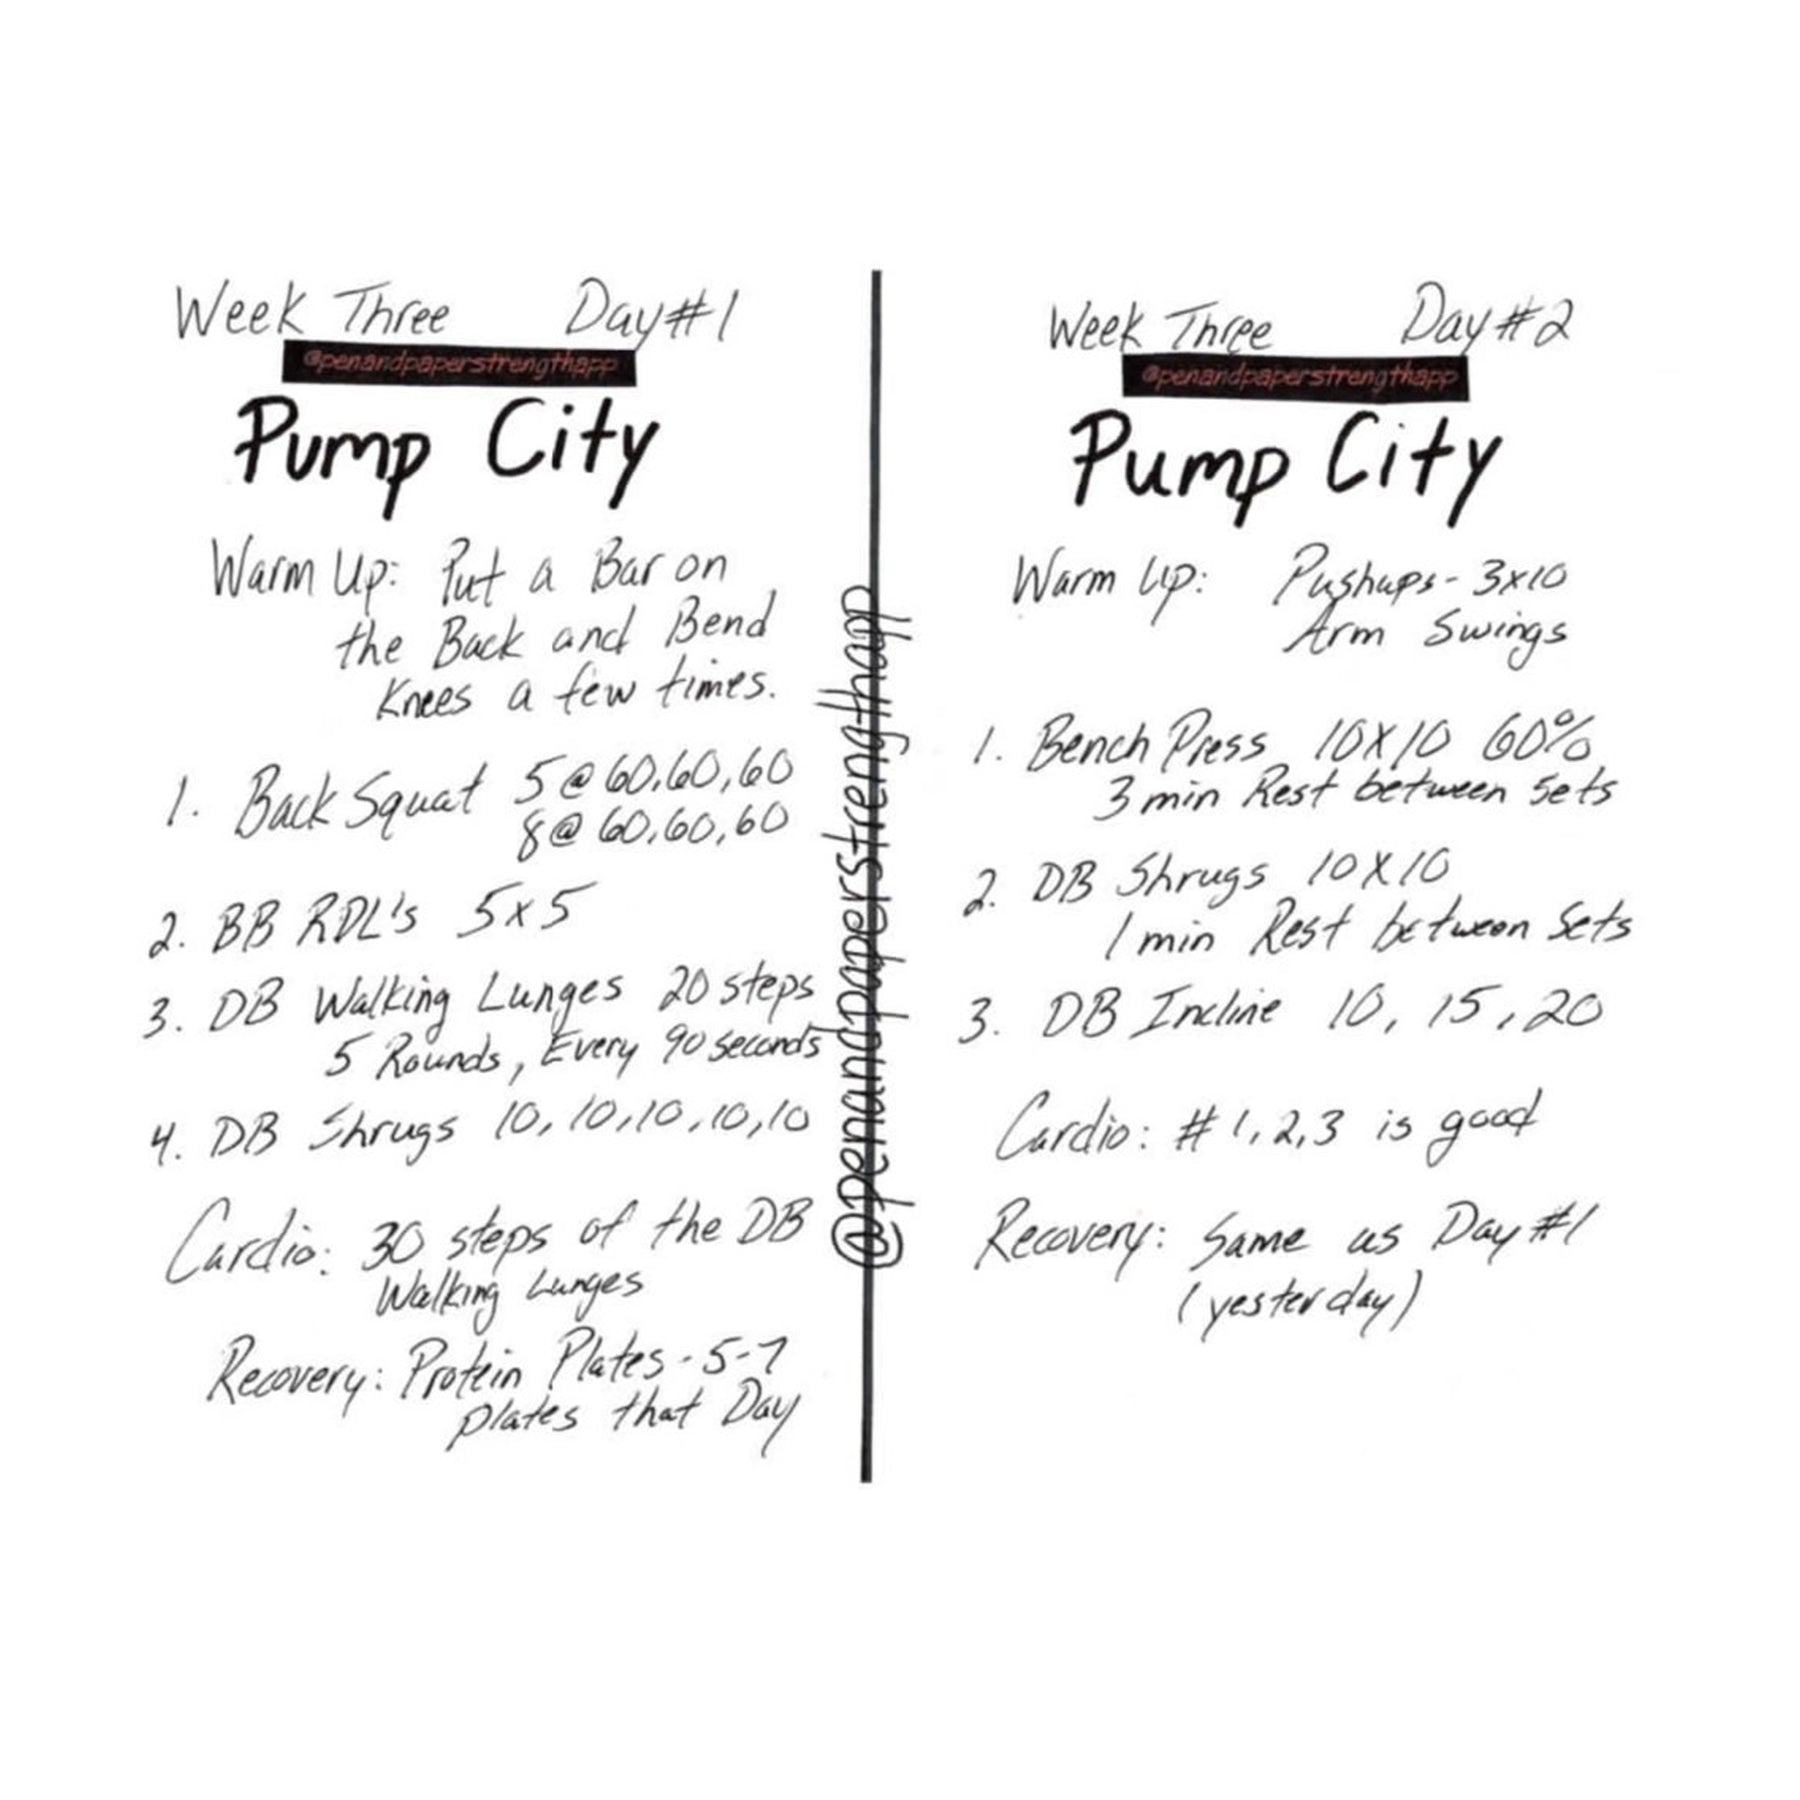 Week Three Day #1
@penandpaperstrengthapp
Pump City
Warm Up: Put a Bar on
the Back and Bend
Knees a few times.
1. Back Squat 5@60,60,60
8@60,60,60
2. BB RDL's 5x5
3. DB Walking Lunges 20 steps
5 Rounds, Every 90 seconds
4. DB Shrugs 10,10,10,10,10
Cardio: 30 steps of the DB
Walking Lunges
Recovery: Protein Plates - 5-7
plates that Day
@penandpaperstrengthapp
Week Three Day #2
@penandpaperstrengthapp
Pump City
Warm Up: Pushups - 3x10
Arm Swings
1. Bench Press 10X10 60%
3 min Rest between Sets
2. DB Shrugs 10X10
1 min Rest between Sets
3. DB Incline 10, 15, 20
Cardio: #1,2,3 is good
Recovery: Same as Day #1
(yesterday)